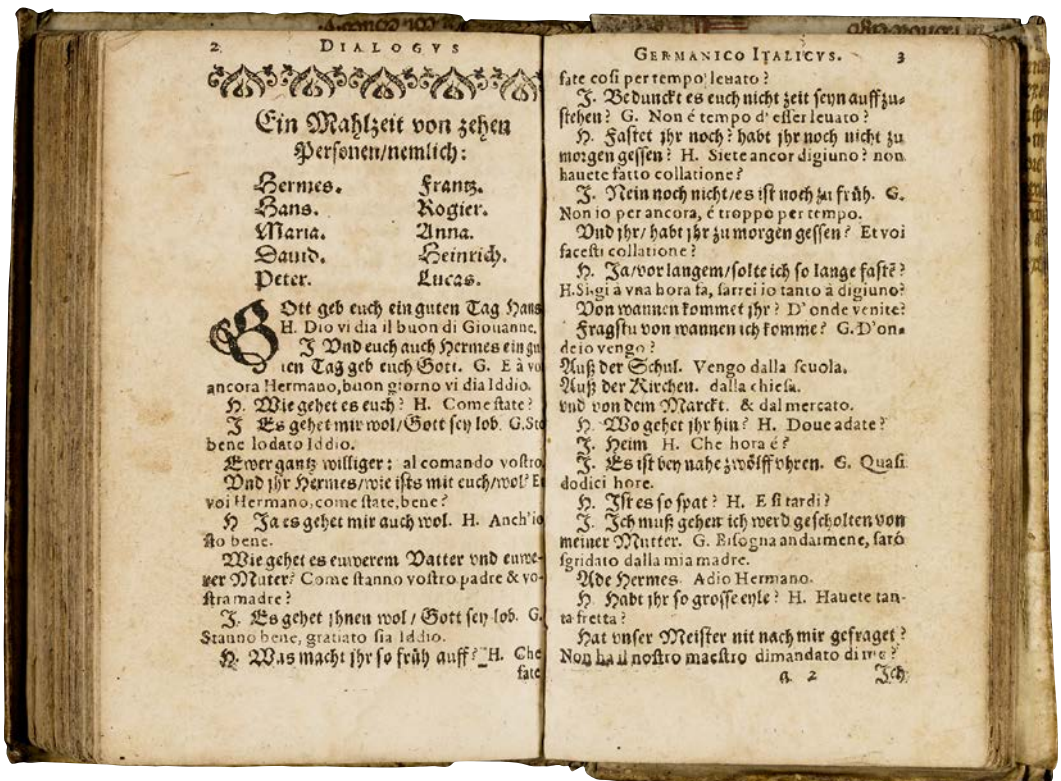 2 DIALOGVS
Ein Mahlzeit von zehen
Personen/nemlich:
Hermes. Frantz.
Hans. Rogier.
Maria. Anna.
Dauid. Heinrich.
Peter. Lucas.
GOtt geb euch ein guten Tag Hans
H. Dio vi dia il buon di Giouanne.
J Vnd euch auch Hermes ein gu
ten Tag geb euch Gott. G. E à vo
ancora Hermano, buon giorno vi dia Iddio.
H. Wie gehet es euch? H. Come state?
J Es gehet mir wol/Gott sey lob. G. Sto
bene lodato Iddio.
Ewer gantz williger: al comando vostro
Vnd jhr Hermes/wie ists mit euch/wol? E
voi Hermano, come state, bene?
H Ja es gehet mir auch wol. H. Anch'io
sto bene.
Wie gehet es euwerem Vatter vnd euwe-
rer Muter? Come stanno vostro padre & vo-
stra madre?
J. Es gehet jhnen wol/Gott sey lob. G.
Stanno bene, gratiato sia Iddio.
H. Was macht jhr so früh auff? H. Che
fate
GERMANICO ITALICVS. 3
fate cosi per tempo leuato?
J. Bedunckt es euch nicht zeit seyn auff zu-
stehen? G. Non é tempo d'esser leuato?
H. Fastet jhr noch? habt jhr noch nicht zu
morgen gessen? H. Siete ancor digiuno? non
hauete fatto collatione?
J. Nein noch nicht/es ist noch zu früh. G.
Non io per ancora, é troppo per tempo.
Vnd jhr/habt jhr zu morgen gessen? Et voi
facesti collatione?
H. Ja/vor langem/solte ich so lange fastē?
H. Si, gi à vna hora fa, sarrei io tanto à digiuno?
Von wannen kommet jhr? D'onde venite?
Fragstu von wannen ich komme? G. D'on-
de io vengo?
Auß der Schul. Vengo dalla scuola.
Auß der Kirchen. dalla chiesa.
vnd von dem Marckt. & dal mercato.
H. Wo gehet jhr hin? H. Doue adate?
J. Heim H. Che hora é?
J. Es ist bey nahe zwölff vhren. G. Quasi
dodici hore.
H. Ist es so spat? H. E si tardi?
J. Ich muß gehen ich werd gescholten von
meiner Mutter. G. Bisogna andarmene, saró
sgridato dalla mia madre.
Ade Hermes. Adio Hermano.
H. Habt jhr so grosse eyle? H. Hauete tan-
ta fretta?
Hat vnser Meister nit nach mir gefraget?
Non ha il nostro maestro dimandato di me?
a 2 Ich